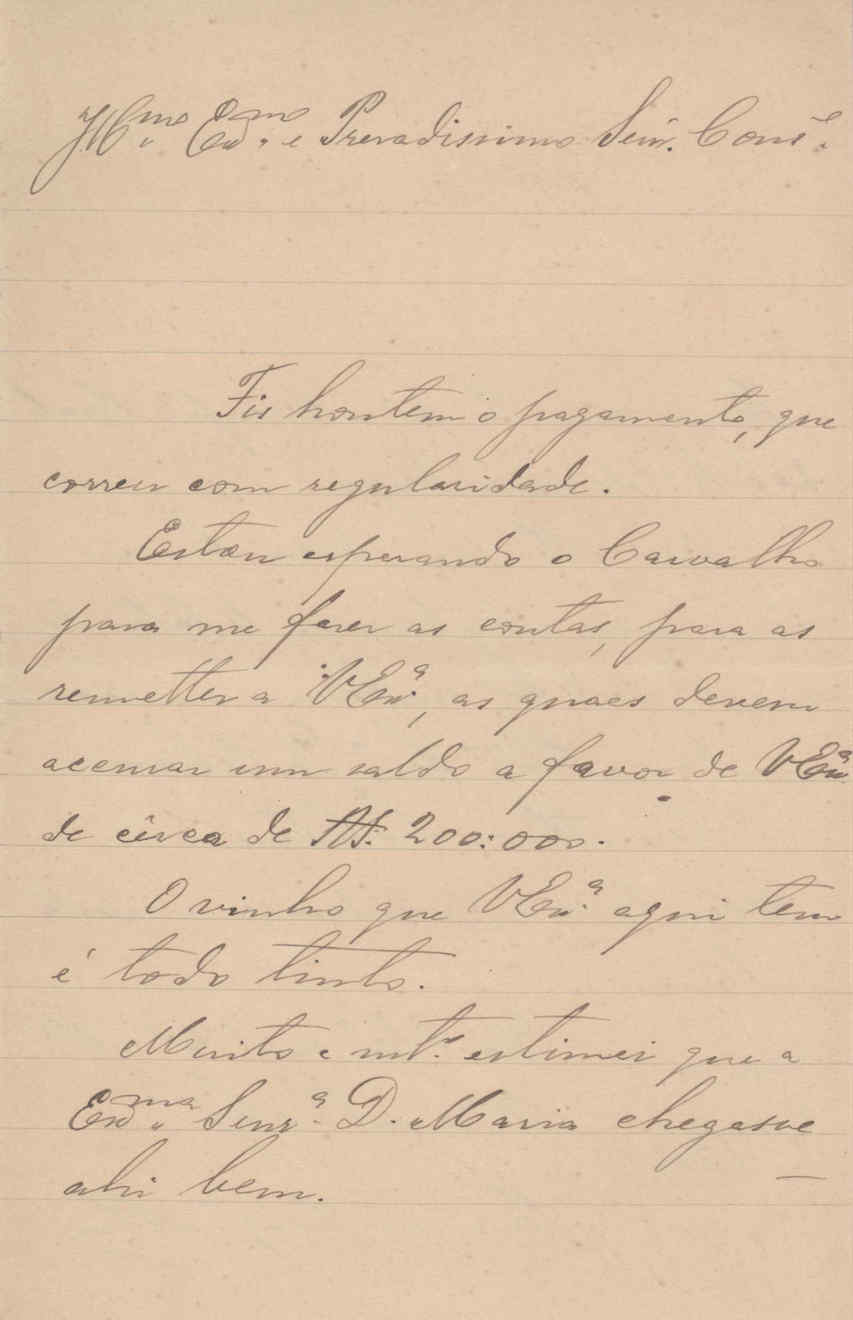 Ill.mo Ex.mo e Presadissimo Sñr. Cons.º
Fis hontem o pagamento, que
correu com regularidade.
Estou esperando o Carvalho
para me fazer as contas, para as
remetter a V.Ex.ª, as quaes devem
accusar um saldo a favor de V.Ex.ª
de cêrca de Rs. 200:000.
O vinho que V.Ex.ª aqui tem
é todo tinto.
Muito e mt.º estimei que a
Ex.ma Senr.ª D. Maria chegasse
ahi bem. —